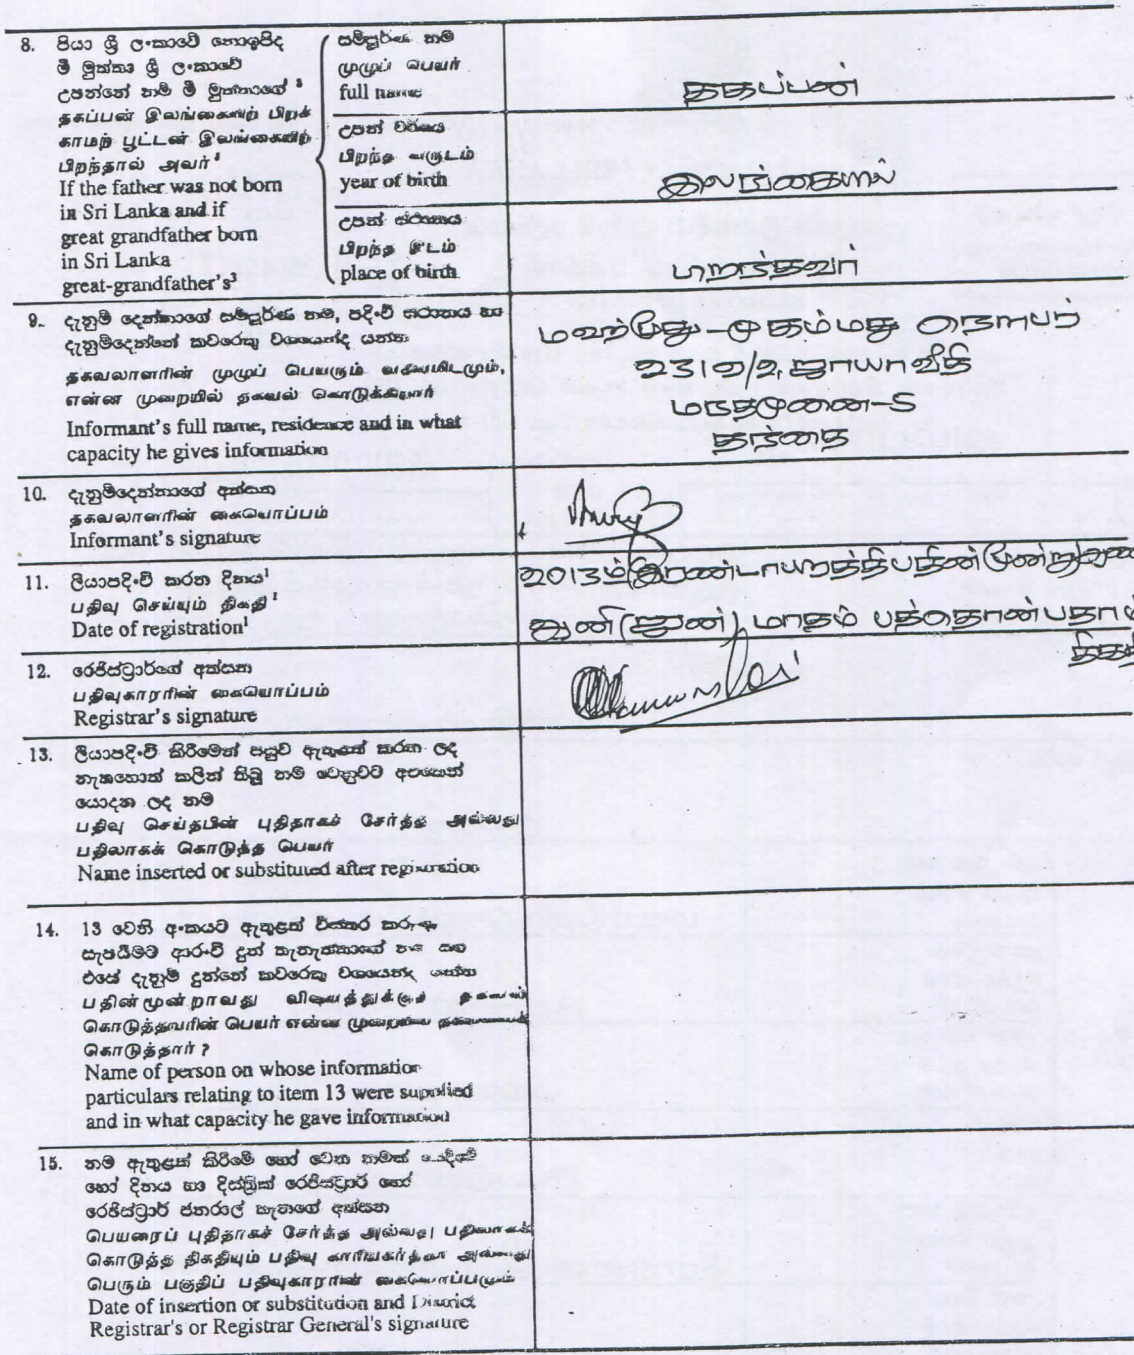 8. පියා ශ්‍රී ලංකාවේ නොඉපිද
මී මුත්තා ශ්‍රී ලංකාවේ
උපන්නේ නම් මී මුත්තාගේ ³
தகப்பன் இலங்கையிற் பிறக்
காமற் பூட்டன் இலங்கையிற்
பிறந்தால் அவர் ³
If the father was not born
in Sri Lanka and if
great grandfather born
in Sri Lanka
great-grandfather's³
සම්පූර්ණ නම
முழுப் பெயர்
full name
தகப்பன்
උපන් වර්ෂය
பிறந்த வருடம்
year of birth
இலங்கையில்
උපන් ස්ථානය
பிறந்த இடம்
place of birth
பிறந்தவர்
9. දැනුම් දෙන්නාගේ සම්පූර්ණ නම, පදිංචි ස්ථානය හා
දැනුම්දෙන්නේ කවරෙකු වශයෙන්ද යන්න
தகவலாளரின் முழுப் பெயரும் வதிவிடமும்,
என்ன முறையில் தகவல் கொடுக்கிறார்
Informant's full name, residence and in what
capacity he gives information
முகம்மது
231 வீதி
மருதமுனை-5
தந்தை
10. දැනුම්දෙන්නාගේ අත්සන
தகவலாளரின் கையொப்பம்
Informant's signature
11. ලියාපදිංචි කරන දිනය¹
பதிவு செய்யும் திகதி ¹
Date of registration¹
2013ம் (இரண்டாயிரத்தி பதின் மூன்று) ஆண்
ஆனி (ஜுன்) மாதம் பத்தொன்பதாம்
திகதி
12. රෙජිස්ට්‍රාර්ගේ අත්සන
பதிவுகாரரின் கையொப்பம்
Registrar's signature
13. ලියාපදිංචි කිරීමෙන් පසුව ඇතුළත් කරන ලද
නැතහොත් කලින් තිබූ නම වෙනුවට අලුතෙන්
යොදන ලද නම
பதிவு செய்தபின் புதிதாகச் சேர்த்த அல்லது
பதிலாகக் கொடுத்த பெயர்
Name inserted or substituted after registration
14. 13 වෙනි අංකයට ඇතුළත් විස්තර කරුණු
සැපයීමට ආරංචි දුන් තැනැත්තාගේ නම සහ
එසේ දැනුම් දුන්නේ කවරෙකු වශයෙන්ද යන්න
பதின்மூன்றாவது விஷயத்துக்குத் தகவல்
கொடுத்தவரின் பெயர் என்ன முறையில் தகவலைக்
கொடுத்தார் ?
Name of person on whose information
particulars relating to item 13 were supplied
and in what capacity he gave information
15. නම ඇතුළත් කිරීමේ හෝ වෙන නමක් යෙදීමේ
හෝ දිනය හා දිස්ත්‍රික් රෙජිස්ට්‍රාර් හෝ
රෙජිස්ට්‍රාර් ජනරාල් තැනගේ අත්සන
பெயரைப் புதிதாகச் சேர்த்த அல்லது பதிலாகக்
கொடுத்த திகதியும் பதிவு காரியகர்த்தா அல்லது
பெரும் பகுதிப் பதிவுகாரரின் கையொப்பமும்
Date of insertion or substitution and District
Registrar's or Registrar General's signature